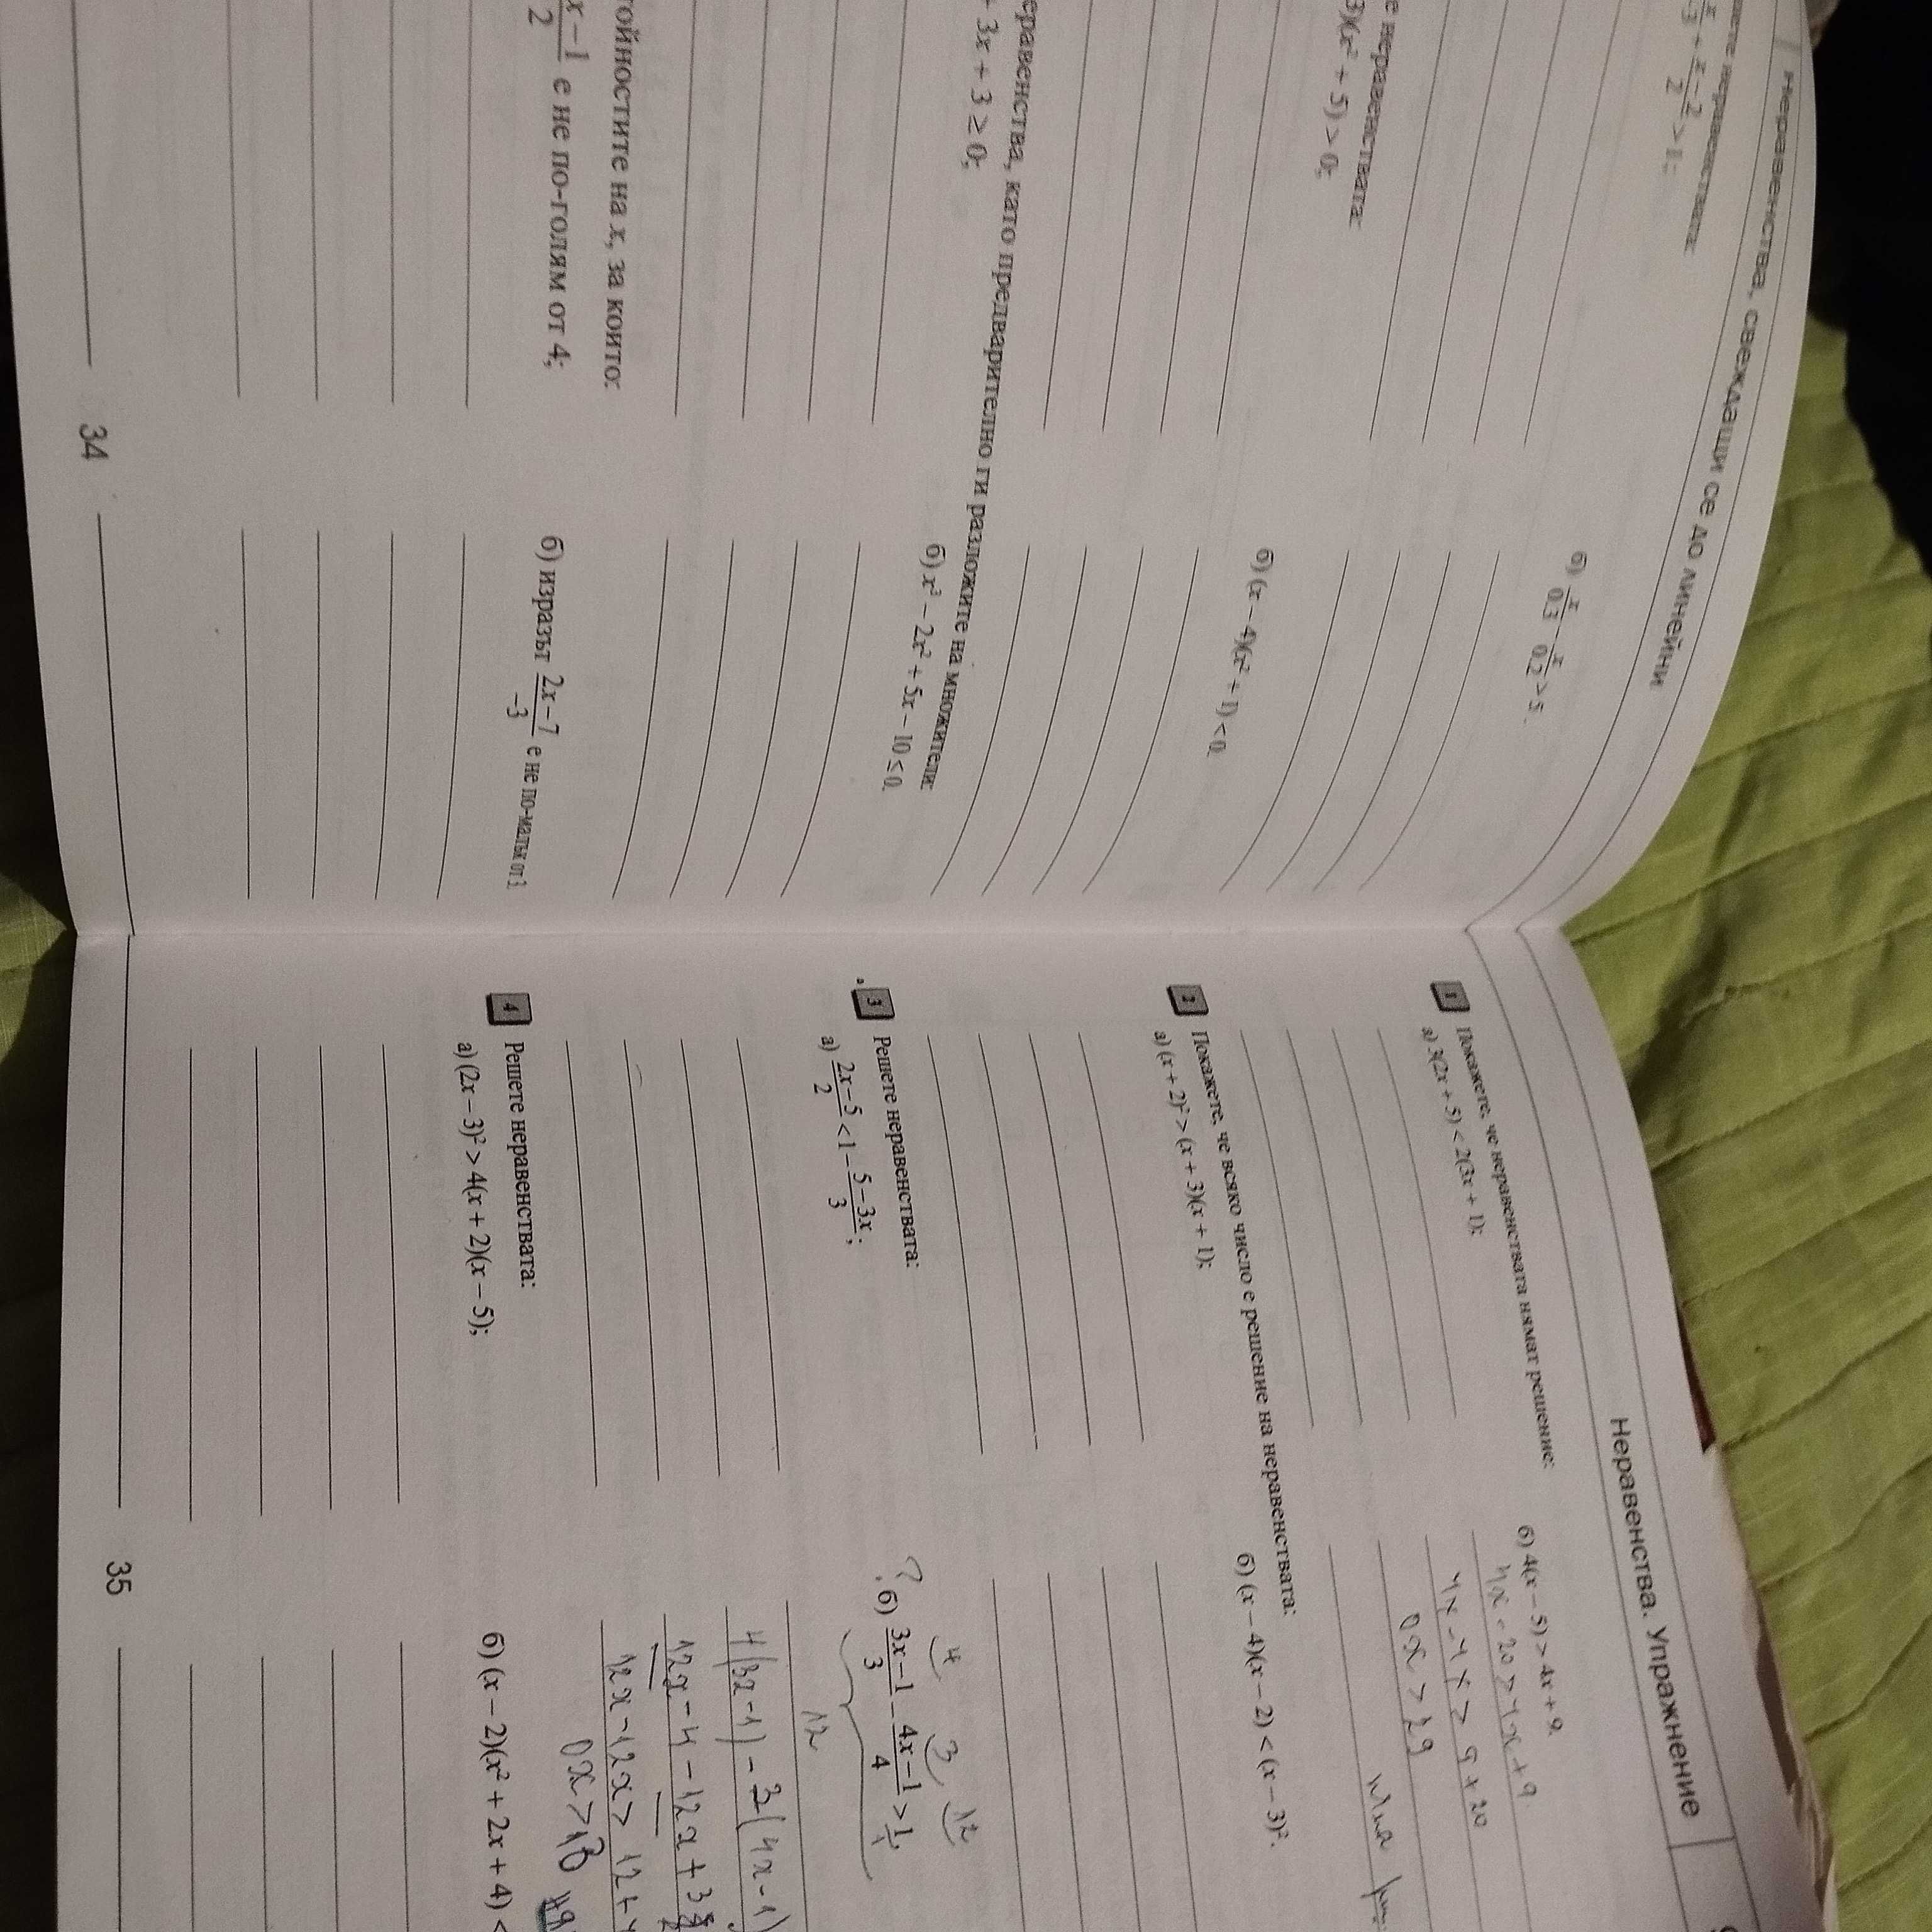 Неравенства, свеждащи се до линейни
неравенствата:
б) x/0,3 − x/0,2 > 5.
е неравенствата:
3)(x² + 5) > 0;
б) (x − 4)(x² + 1) < 0.
неравенства, като предварително ги разложите на множители:
+ 3x + 3 ≥ 0;
б) x³ − 2x² + 5x − 10 ≤ 0.
тойностите на x, за които:
x − 1/2 е не по-голям от 4;
б) изразът 2x − 7/−3 е не по-малък от 3.
34
Неравенства. Упражнение
1 Покажете, че неравенствата нямат решение:
а) 3(2x + 5) < 2(3x + 1);
б) 4(x − 5) > 4x + 9.
4x - 20 > 4x + 9
4x - 4x > 9 + 20
0x > 29
2 Покажете, че всяко число е решение на неравенствата:
а) (x + 2)² > (x + 3)(x + 1);
б) (x − 4)(x − 2) < (x − 3)².
3 Решете неравенствата:
а) 2x − 5/2 < 1 − 5 − 3x/3;
4 3 12
? б) 3x − 1/3 − 4x − 1/4 > 1/1.
12
4(3x-1) - 3(4x-1)
12x - 4 - 12x + 3
12x - 12x > 12 +
0x > 13
4 Решете неравенствата:
а) (2x − 3)² > 4(x + 2)(x − 5);
б) (x − 2)(x² + 2x + 4) <
35